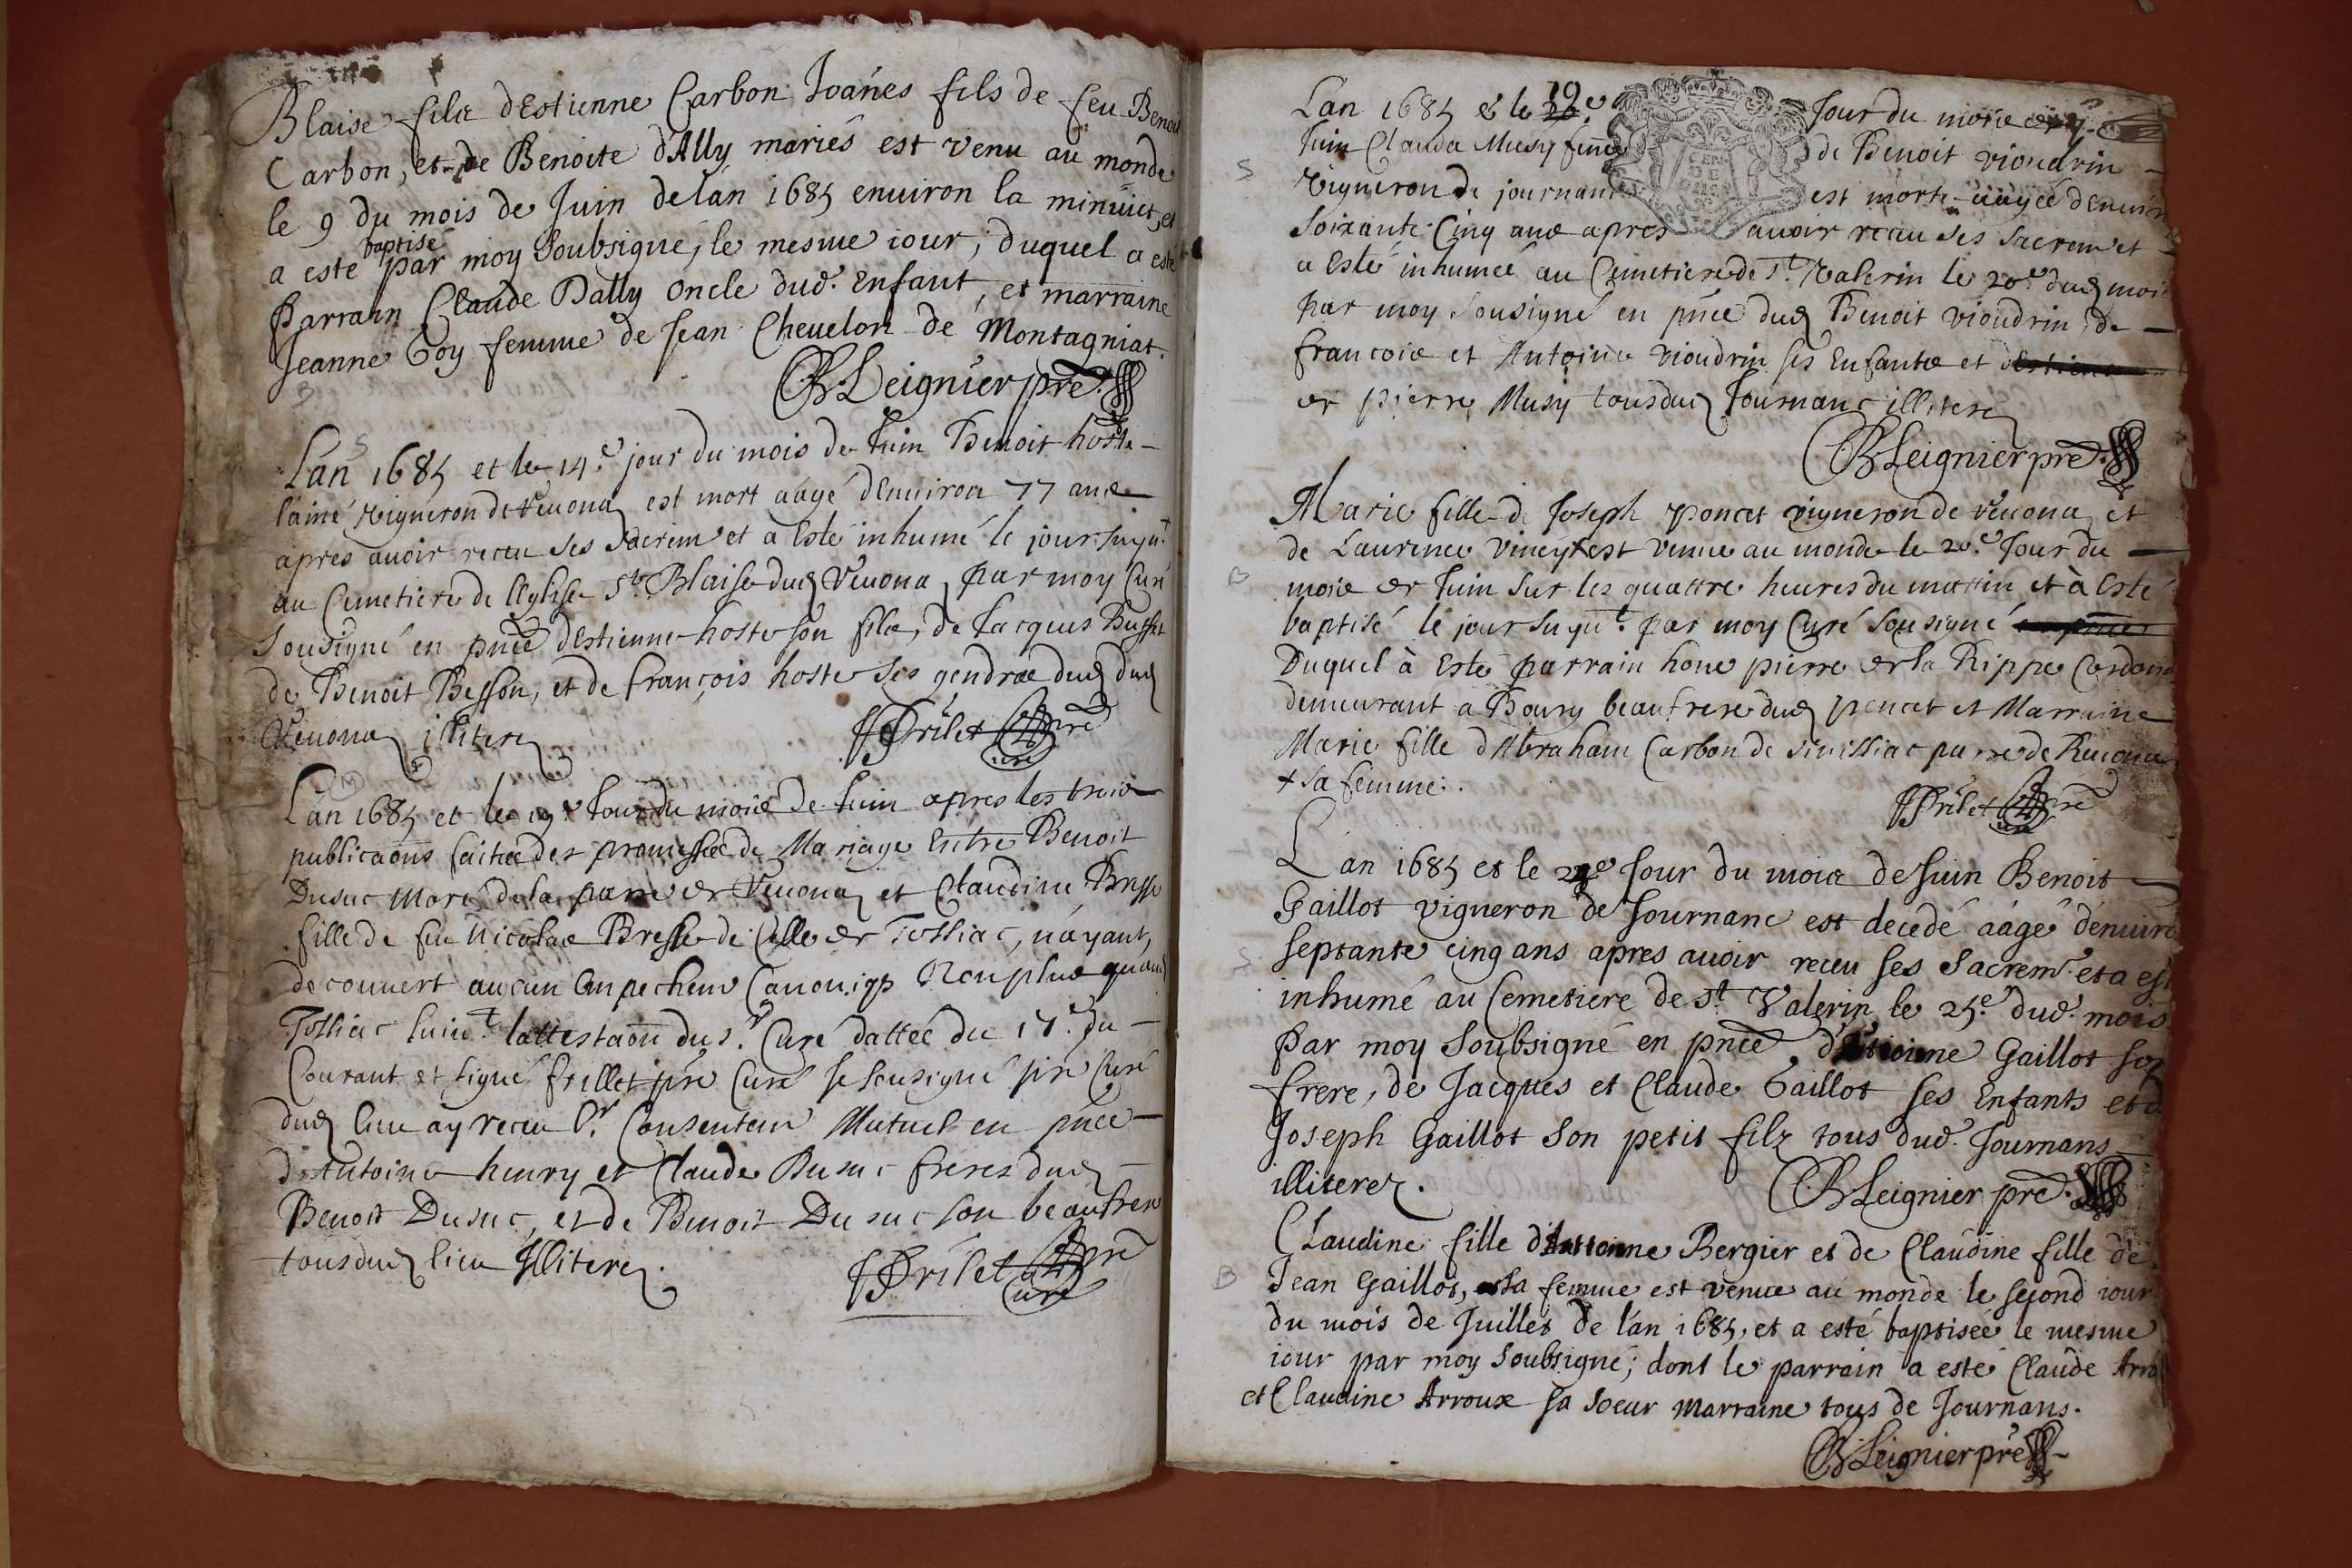 Blaise filz dEstienne Carbon Joanes fils de feu Benoit
Carbon, et de Benoite dAlly mariés est venu au monde
le 9 du mois de Juin delán 1685 enuiron la minuict, et
a esté baptisé par moy Soubsigné, le mesme iour, duquel a esté
Parrain Claude Dally oncle dud. Enfant, et marraine
Jeanne Goy femme de Jean Cheuelon de Montagniat.
B
Leignier pre.
S
Lán 1685 et le 14.e jour du mois de Juin Benoit hoste
lainé vigneron de Reuona est mort aagé dEnuiron 77 ans
apres auoir receu ses sacrem et a Esté inhumé le jour suyu.t
au Cemetiere de lEglise St. Blaise dud Reuona par moy Curé
Sousigné en pnce dEstienne hoste son filz, de Jacques Buffet
de Benoit Besson, et de françois hoste ses gendres dud
Reuona illitere
JPrilet pre
curé
M
Lán 1685 et le 19.e Jour du mois de Juin apres les trois
publicaons faites des promesses de Mariage Entre Benoit
Dusuc Moré de la parre de Reuona et Claudine Bresse
fille de feu Nicolas Bresse de Celle de Tossiac, náyant,
decouuert aucun Empechem Canoniq Non plus quaud
Tossiac suiu.t lattestaon du s.r Curé dattée du 17.e du
Courant et signé frillet pre Curé Je sousigné pre Curé
dud lieu ay receu l.r Consentem Mutuel en pnce
dAntoine henry et Claude Dusuc freres dud
Benoit Dusuc, et de Benoit Dusuc son beaufrere
tous dud lieu Illitere.
JPrilet pre
Curé
Lan 1685 & le 19e Jour du mois de
Juin Clauda Musy feme de Benoit vioudrin
S
vigneron de journans est morte aagée denuiron
soixante Cinq ans apres auoir receu ses sacrem et
a Esté inhumée au Cemetiere de St. Valerin le 20.e dud mois
par moy Sousigné en pnce dud Benoit vioudrin, de
francois et Antoine vioudrin ses Enfants et
de pierre Musy tous dud Journans illitere
Leignier pre.
Marie fille de Joseph Poncet vigneron de Reuona et
de Laurence Viney+ est venue au monde le 20.e Jour du
B
mois de Juin sur les quattre heures du mattin et à Esté
baptisé le jour suyu.t par moy Curé Sousigné
Duquel à Esté parrain hone pierre de la Rippe Cordon
demeurant a Bourg beaufrere dud poncet et Marraine
Marie fille dAbraham Carbon de parre de Reuona
+ sa femme.
JPrilet pre
curé
Lán 1685 et le 24e Jour du mois de Juin Benoit
Gaillot vigneron de Journanc est decedé aagé denuiro
S
septante cinq ans apres auoir receu ses Sacrem. et a est
inhumé au Cemetiere de St Valerin le 25.e dud. mois
Par moy Soubsigné en pnce dEstienne Gaillot son
frere, de Jacques et Claude Gaillot ses Enfants et d
Joseph Gaillot son petit filz tous dud. Journans
illiterez.
Leignier pre.
Claudine fille dAnttoinne Bergier et de Claudine fille de
B
Jean Gaillot, sa femme est venue au monde le second iour
du mois de Juillet de lán 1685, et a esté baptisée le mesme
iour par moy Soubsigné; dont le parrain a esté Claude Arro
et Claudine Arroux sa soeur marraine tous de Journans.
Leignier pre